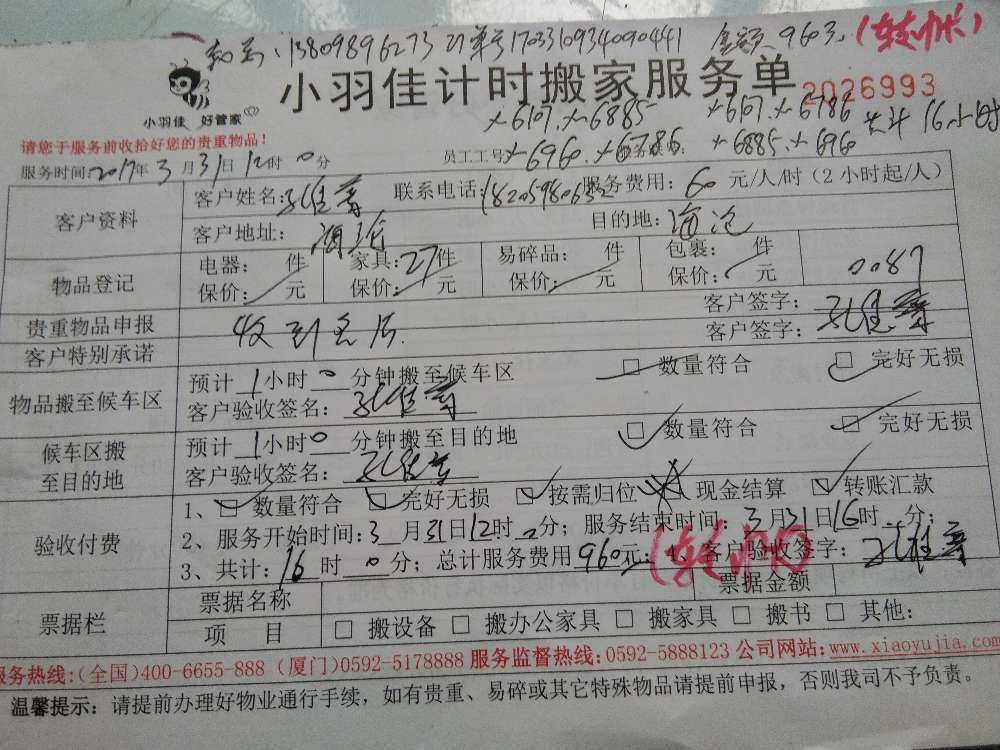 13809896273 订单号1703310934090441 金额 960元 (转帐)
小羽佳计时搬家服务单 2026993
小羽佳 好管家
请您于服务前收拾好您的贵重物品!
6107. 6885 6107. 6786 共计16小时
服务时间:2017年3月31日12时0分 员工工号 6960. 6885 6960
客户资料 客户姓名: 联系电话: 服务费用:60元/人/时(2小时起/人)
客户地址: 目的地:海沧
物品登记 电器: 件 家具:27件 易碎品: 件 包裹: 件 0087
保价: 元 保价: 元 保价: 元 保价: 元
贵重物品申报 客户签字:
客户特别承诺 客户签字:
物品搬至候车区 预计1小时0分钟搬至候车区 数量符合 完好无损
客户验收签名:
候车区搬至目的地 预计1小时0分钟搬至目的地 数量符合 完好无损
客户验收签名:
验收付费 1、数量符合 完好无损 按需归位 现金结算 转账汇款
2、服务开始时间:3月31日12时0分;服务结束时间:3月31日16时 分;
3、共计:16时0分;总计服务费用960元 (转帐) 客户验收签字:
票据栏 票据名称 票据金额
项 目 搬设备 搬办公家具 搬家具 搬书 其他:
服务热线:(全国)400-6655-888 (厦门)0592-5178888 服务监督热线:0592-5888123 公司网站:www.xiaoyujia.com
温馨提示:请提前办理好物业通行手续,如有贵重、易碎或其它特殊物品请提前申报,否则我司不予负责。